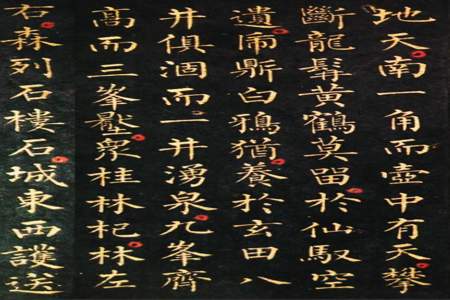 地天南一角而壺中有天攀
斷龍髯黃鶴莫留於仙馭空
遺鼎白鴉猶養於玄田八
井俱涸而一井湧泉九峯齊
高而三峯壓眾桂林杞林左
右森列石樓石城東西護送